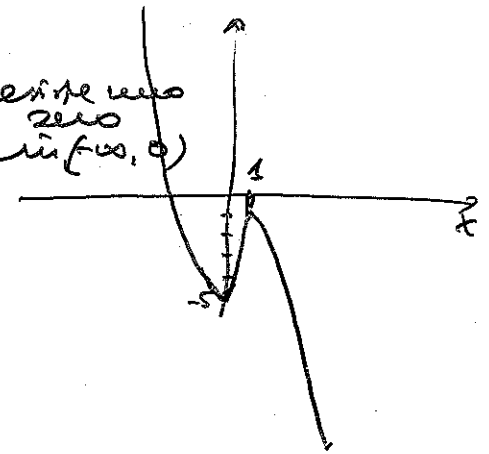 esiste uno
zero
in (-∞, 0)
1
-5
x